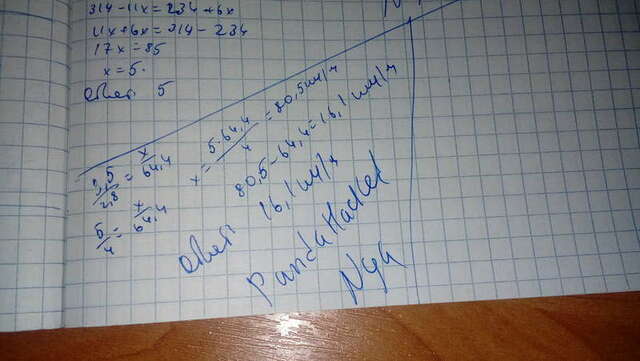 314 - 11x = 234 + 6x
11x + 6x = 314 - 234
17x = 85
x = 5.
Ответ: 5
3,5/2,8 = x/64,4
5/4 = x/64,4
x = 5·64,4/4 = 80,5 км/ч
80,5 - 64,4 = 16,1 км/ч
Ответ: 16,1 км/ч
PandaHacker